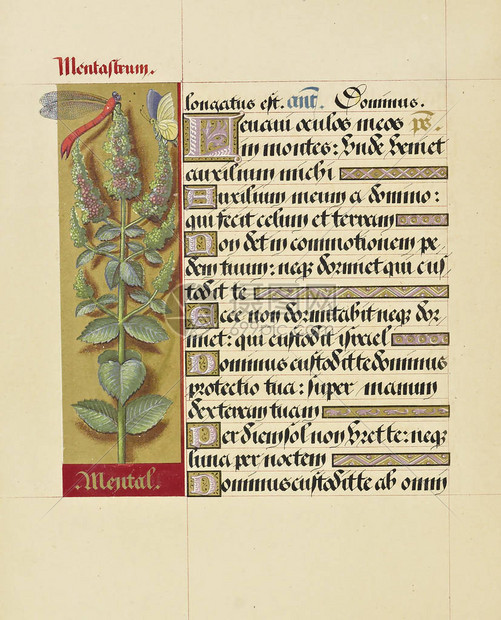 Mentastrum.
longatus est. añt. Dominus.
Levavi oculos meos ps̃.
in montes: unde veniet
auxilium michi
Auxilium meum a domino:
qui fecit celum et terram
Non det in commotionem pe
dem tuum: neq̃ dormiet qui cus
todit te
Ecce non dormitabit neq̃ dor
miet: qui custodit israel
Dominus custodit te dominus
protectio tua: super manum
dexteram tuam
Per diem sol non uret te: neq̃
luna per noctem
Dominus custodit te ab omni
Mental.